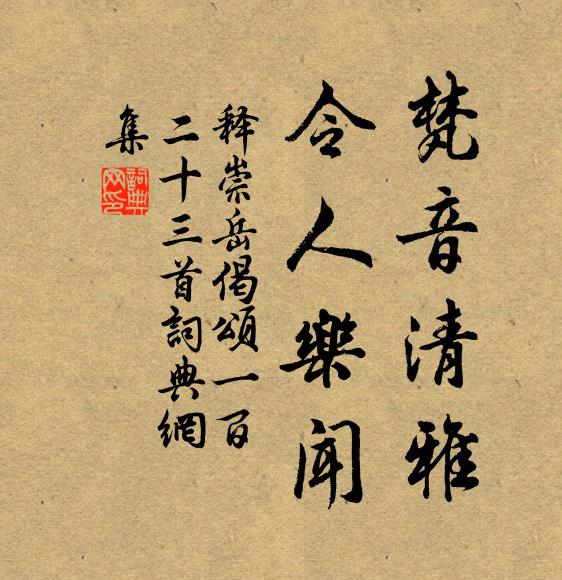 梵音清雅
令人樂聞
释崇岳偈頌一百
二十三首詞典網
集
詞典
网印